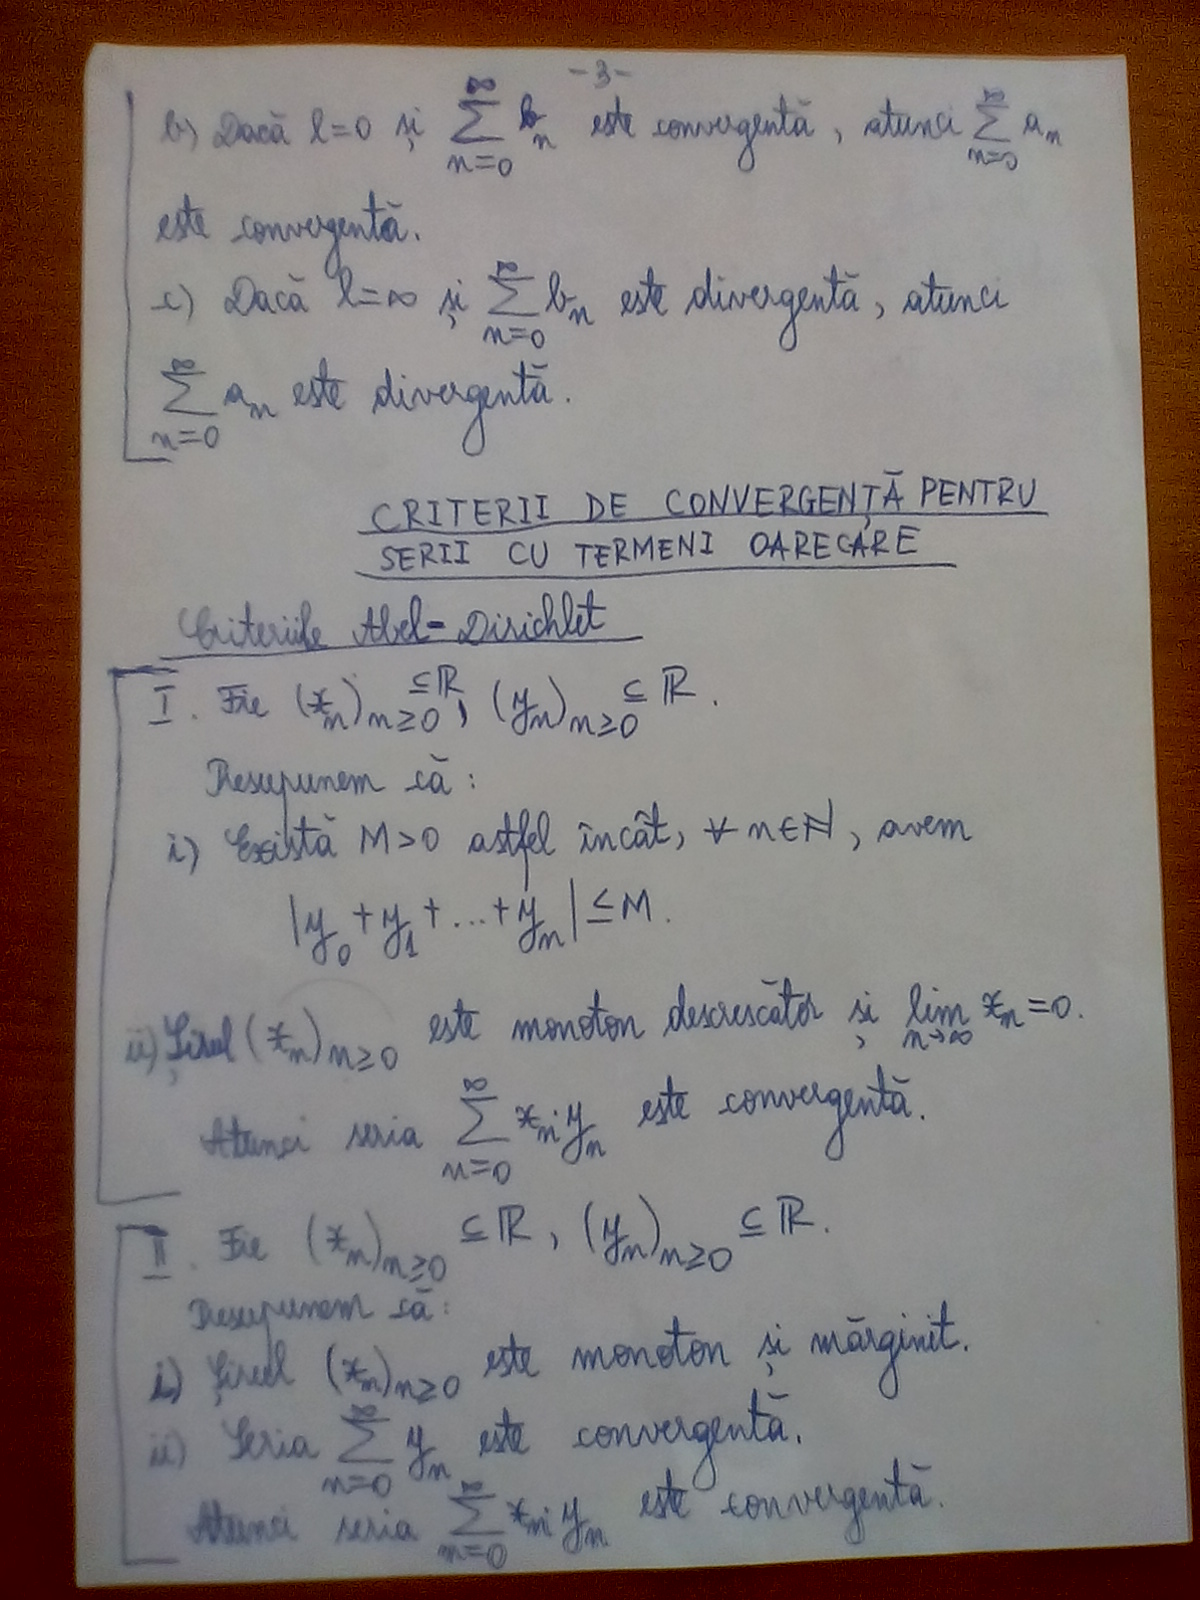 -3-
b) Dacă l=0 și ∑_{n=0}^{∞} b_n este convergentă, atunci ∑_{n=0}^{∞} a_n
este convergentă.
c) Dacă l=∞ și ∑_{n=0}^{∞} b_n este divergentă, atunci
∑_{n=0}^{∞} a_n este divergentă.
CRITERII DE CONVERGENȚĂ PENTRU
SERII CU TERMENI OARECARE
Criteriile Abel-Dirichlet
I. Fie (x_n)_{n≥0} ⊆ ℝ, (y_n)_{n≥0} ⊆ ℝ.
Presupunem că:
i) Există M>0 astfel încât, ∀ n∈ℕ, avem
|y_0+y_1+...+y_n| ≤ M.
ii) Șirul (x_n)_{n≥0} este monoton descrescător și lim_{n→∞} x_n=0.
Atunci seria ∑_{n=0}^{∞} x_n·y_n este convergentă.
II. Fie (x_n)_{n≥0} ⊆ ℝ, (y_n)_{n≥0} ⊆ ℝ.
Presupunem că:
i) Șirul (x_n)_{n≥0} este monoton și mărginit.
ii) Seria ∑_{n=0}^{∞} y_n este convergentă.
Atunci seria ∑_{n=0}^{∞} x_n·y_n este convergentă.